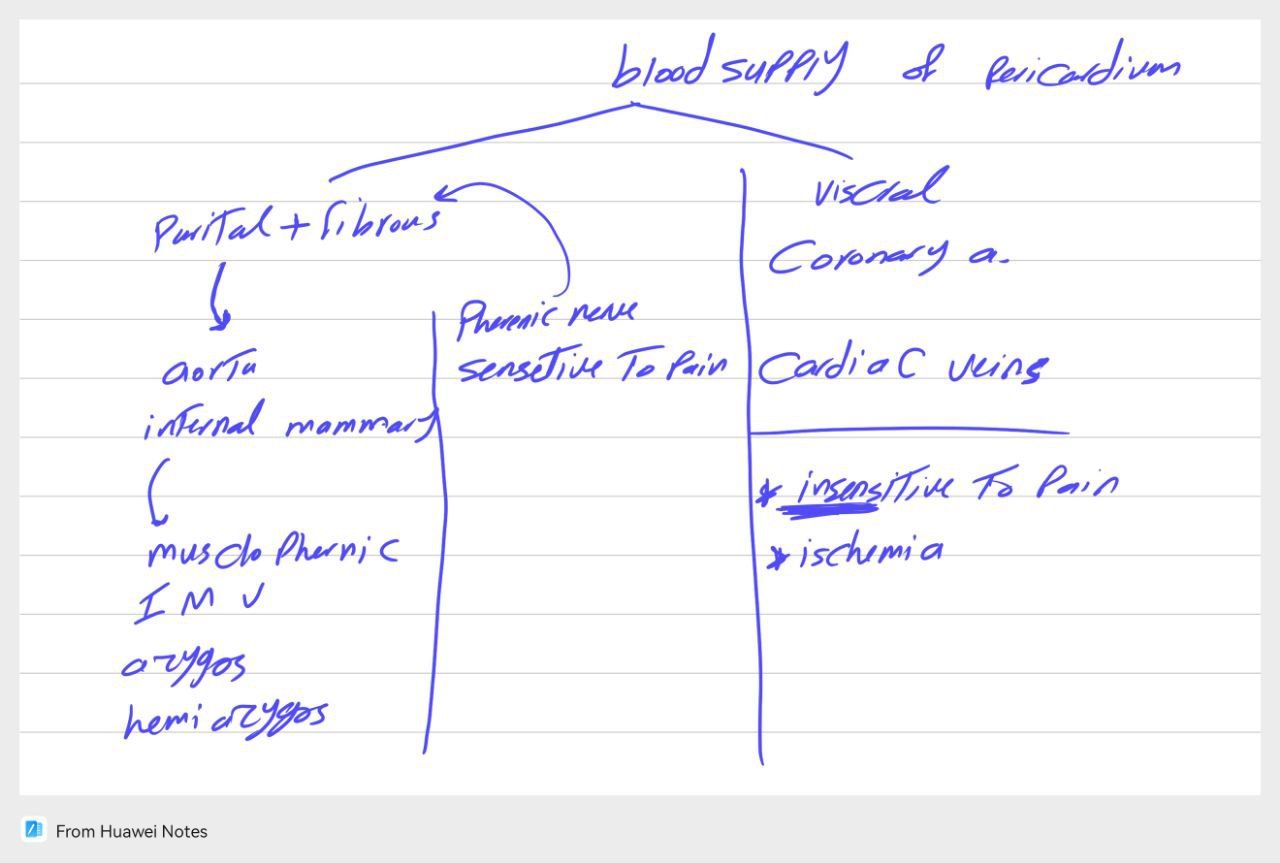 blood supply of Pericardium
Purital + fibrous
aorta
internal mammary
musclo Phernic
I M V
azygos
hemi azygos
Pherenic nerve
sensetive To Pain
viscral
Coronary a.
Cardiac veins
* insensitive To Pain
* ischemia
From Huawei Notes